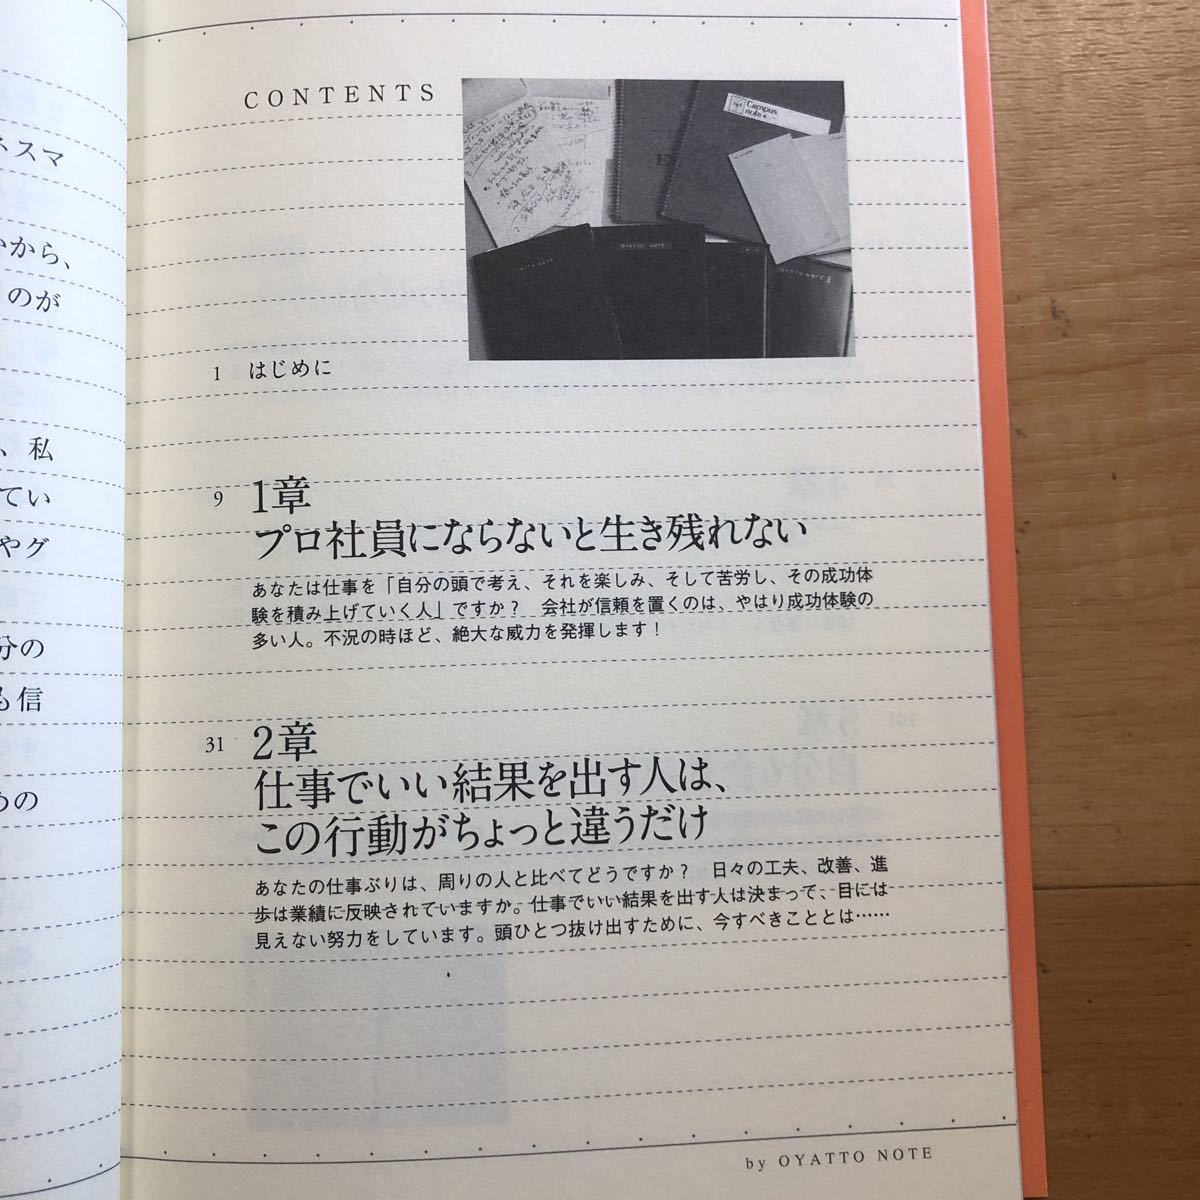 CONTENTS
Campus
note
OYATTO NOTE
1 はじめに
9 1章
プロ社員にならないと生き残れない
あなたは仕事を「自分の頭で考え、それを楽しみ、そして苦労し、その成功体
験を積み上げていく人」ですか？　会社が信頼を置くのは、やはり成功体験の
多い人。不況の時ほど、絶大な威力を発揮します！
31 2章
仕事でいい結果を出す人は、
この行動がちょっと違うだけ
あなたの仕事ぶりは、周りの人と比べてどうですか？　日々の工夫、改善、進
歩は業績に反映されていますか。仕事でいい結果を出す人は決まって、目には
見えない努力をしています。頭ひとつ抜け出すために、今すべきこととは……
by OYATTO NOTE
ネスマ
から、
のが
、私
てい
やグ
分の
も信
めの